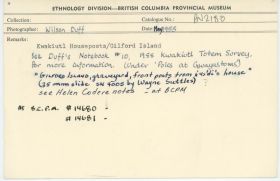 ETHNOLOGY DIVISION—BRITISH COLUMBIA PROVINCIAL MUSEUM
Collection:
Catalogue No.: PN2180
Photographer: Wilson Duff
Date: 1955
Remarks:
Kwakiutl Houseposts/Gilford Island
See Duff's Notebook #10, 1955 Kwakiutl Totem Survey,
for more information (under 'Poles at Gwayastums)
graveyard, front posts from house"
(35 mm slide by Wayne Suttles) ?
see Helen Codere notes - at BCPM
as B.C.P.M. #14680 -
#14681 -